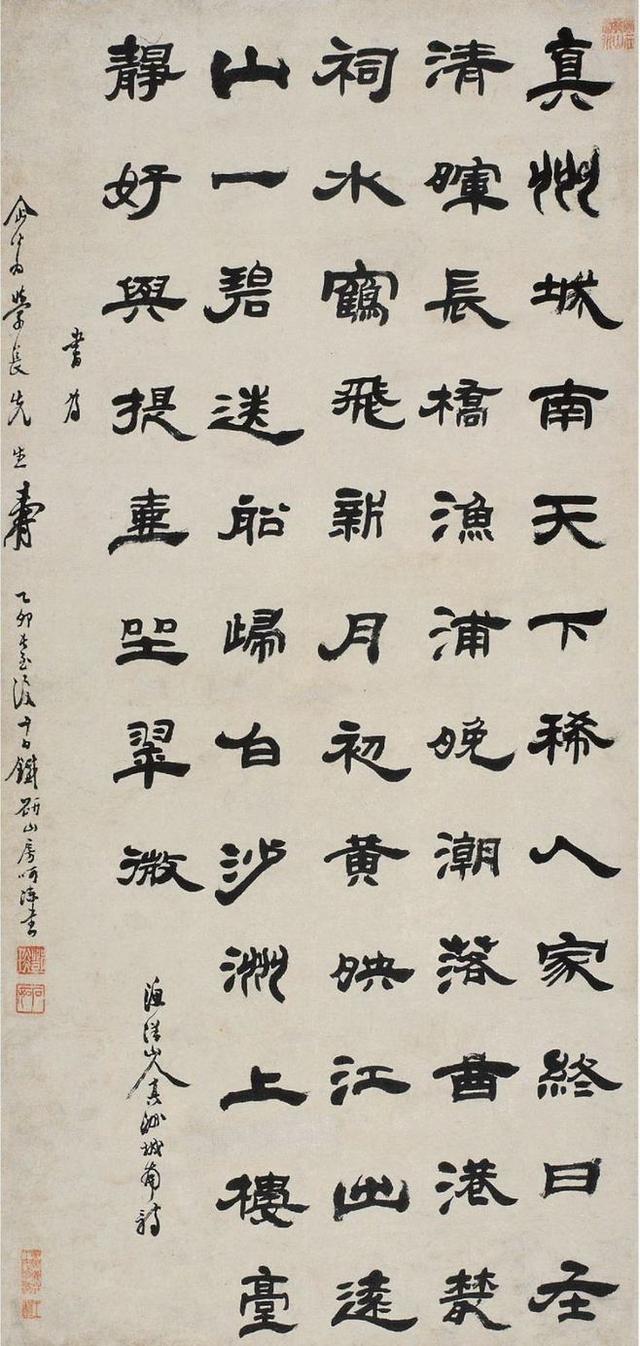 真州城南天下稀人家終日在
清暉長橋漁浦晚潮落曲港叢
祠水鶴飛新月初黃映江出遠
山一碧送船歸白沙洲上樓臺
靜好與提壺坐翠微
漁洋山人真州城南詩
書為
學長先生壽 乙卯長至後十日鐵研山房